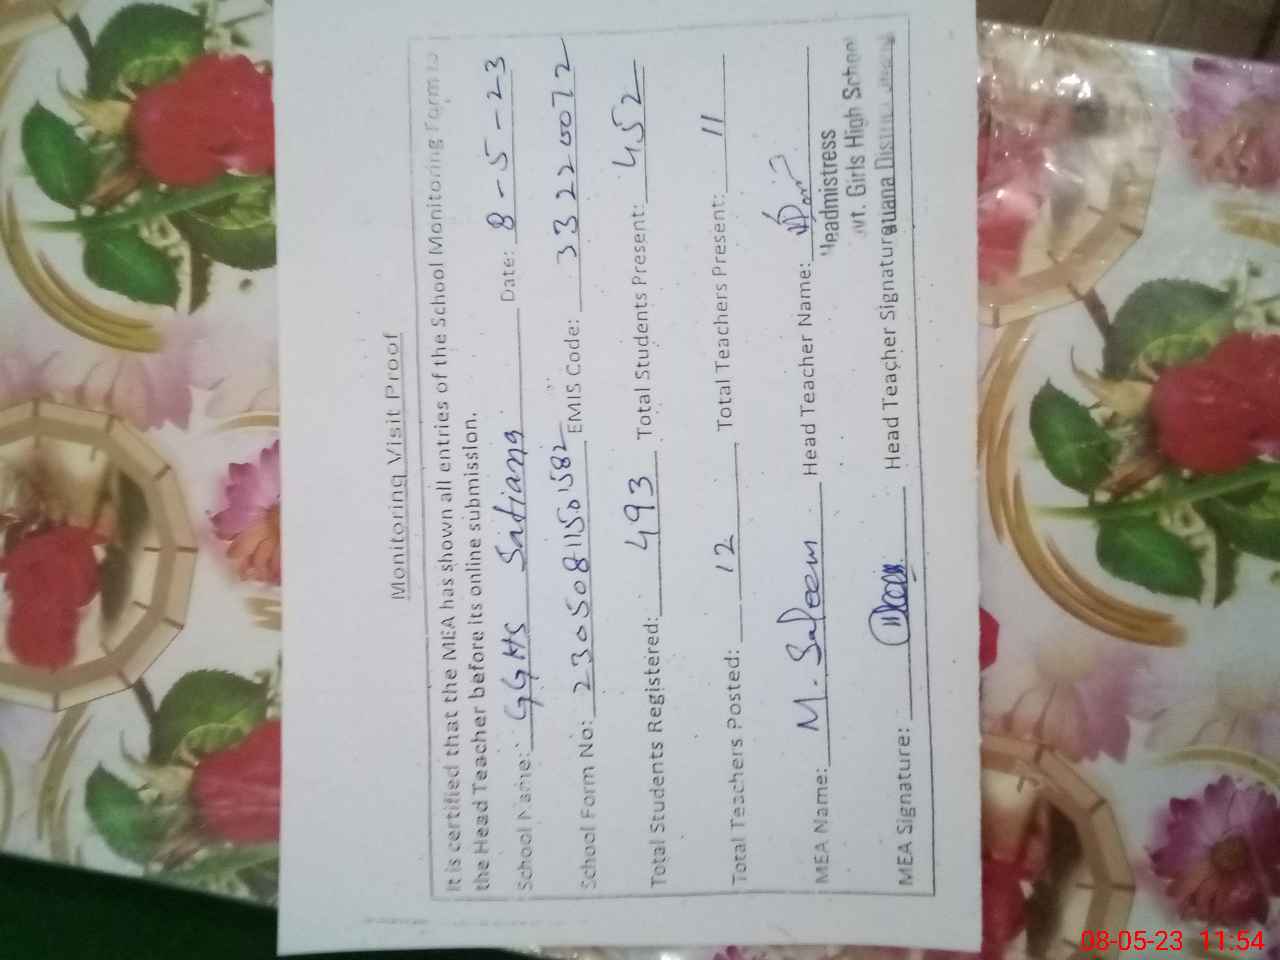 Monitoring Visit Proof
It is certified that the MEA has shown all entries of the School Monitoring Form to
the Head Teacher before its online submission.
School Name: GGHS Satiana Date: 8-5-23
School Form No: 23050811501582 EMIS Code: 33220072
Total Students Registered: 493 Total Students Present: 452
Total Teachers Posted: 12 Total Teachers Present: 11
MEA Name: M. Saleem Head Teacher Name:
Headmistress
Girls High School
MEA Signature: Head Teacher Signature
08-05-23 11:54